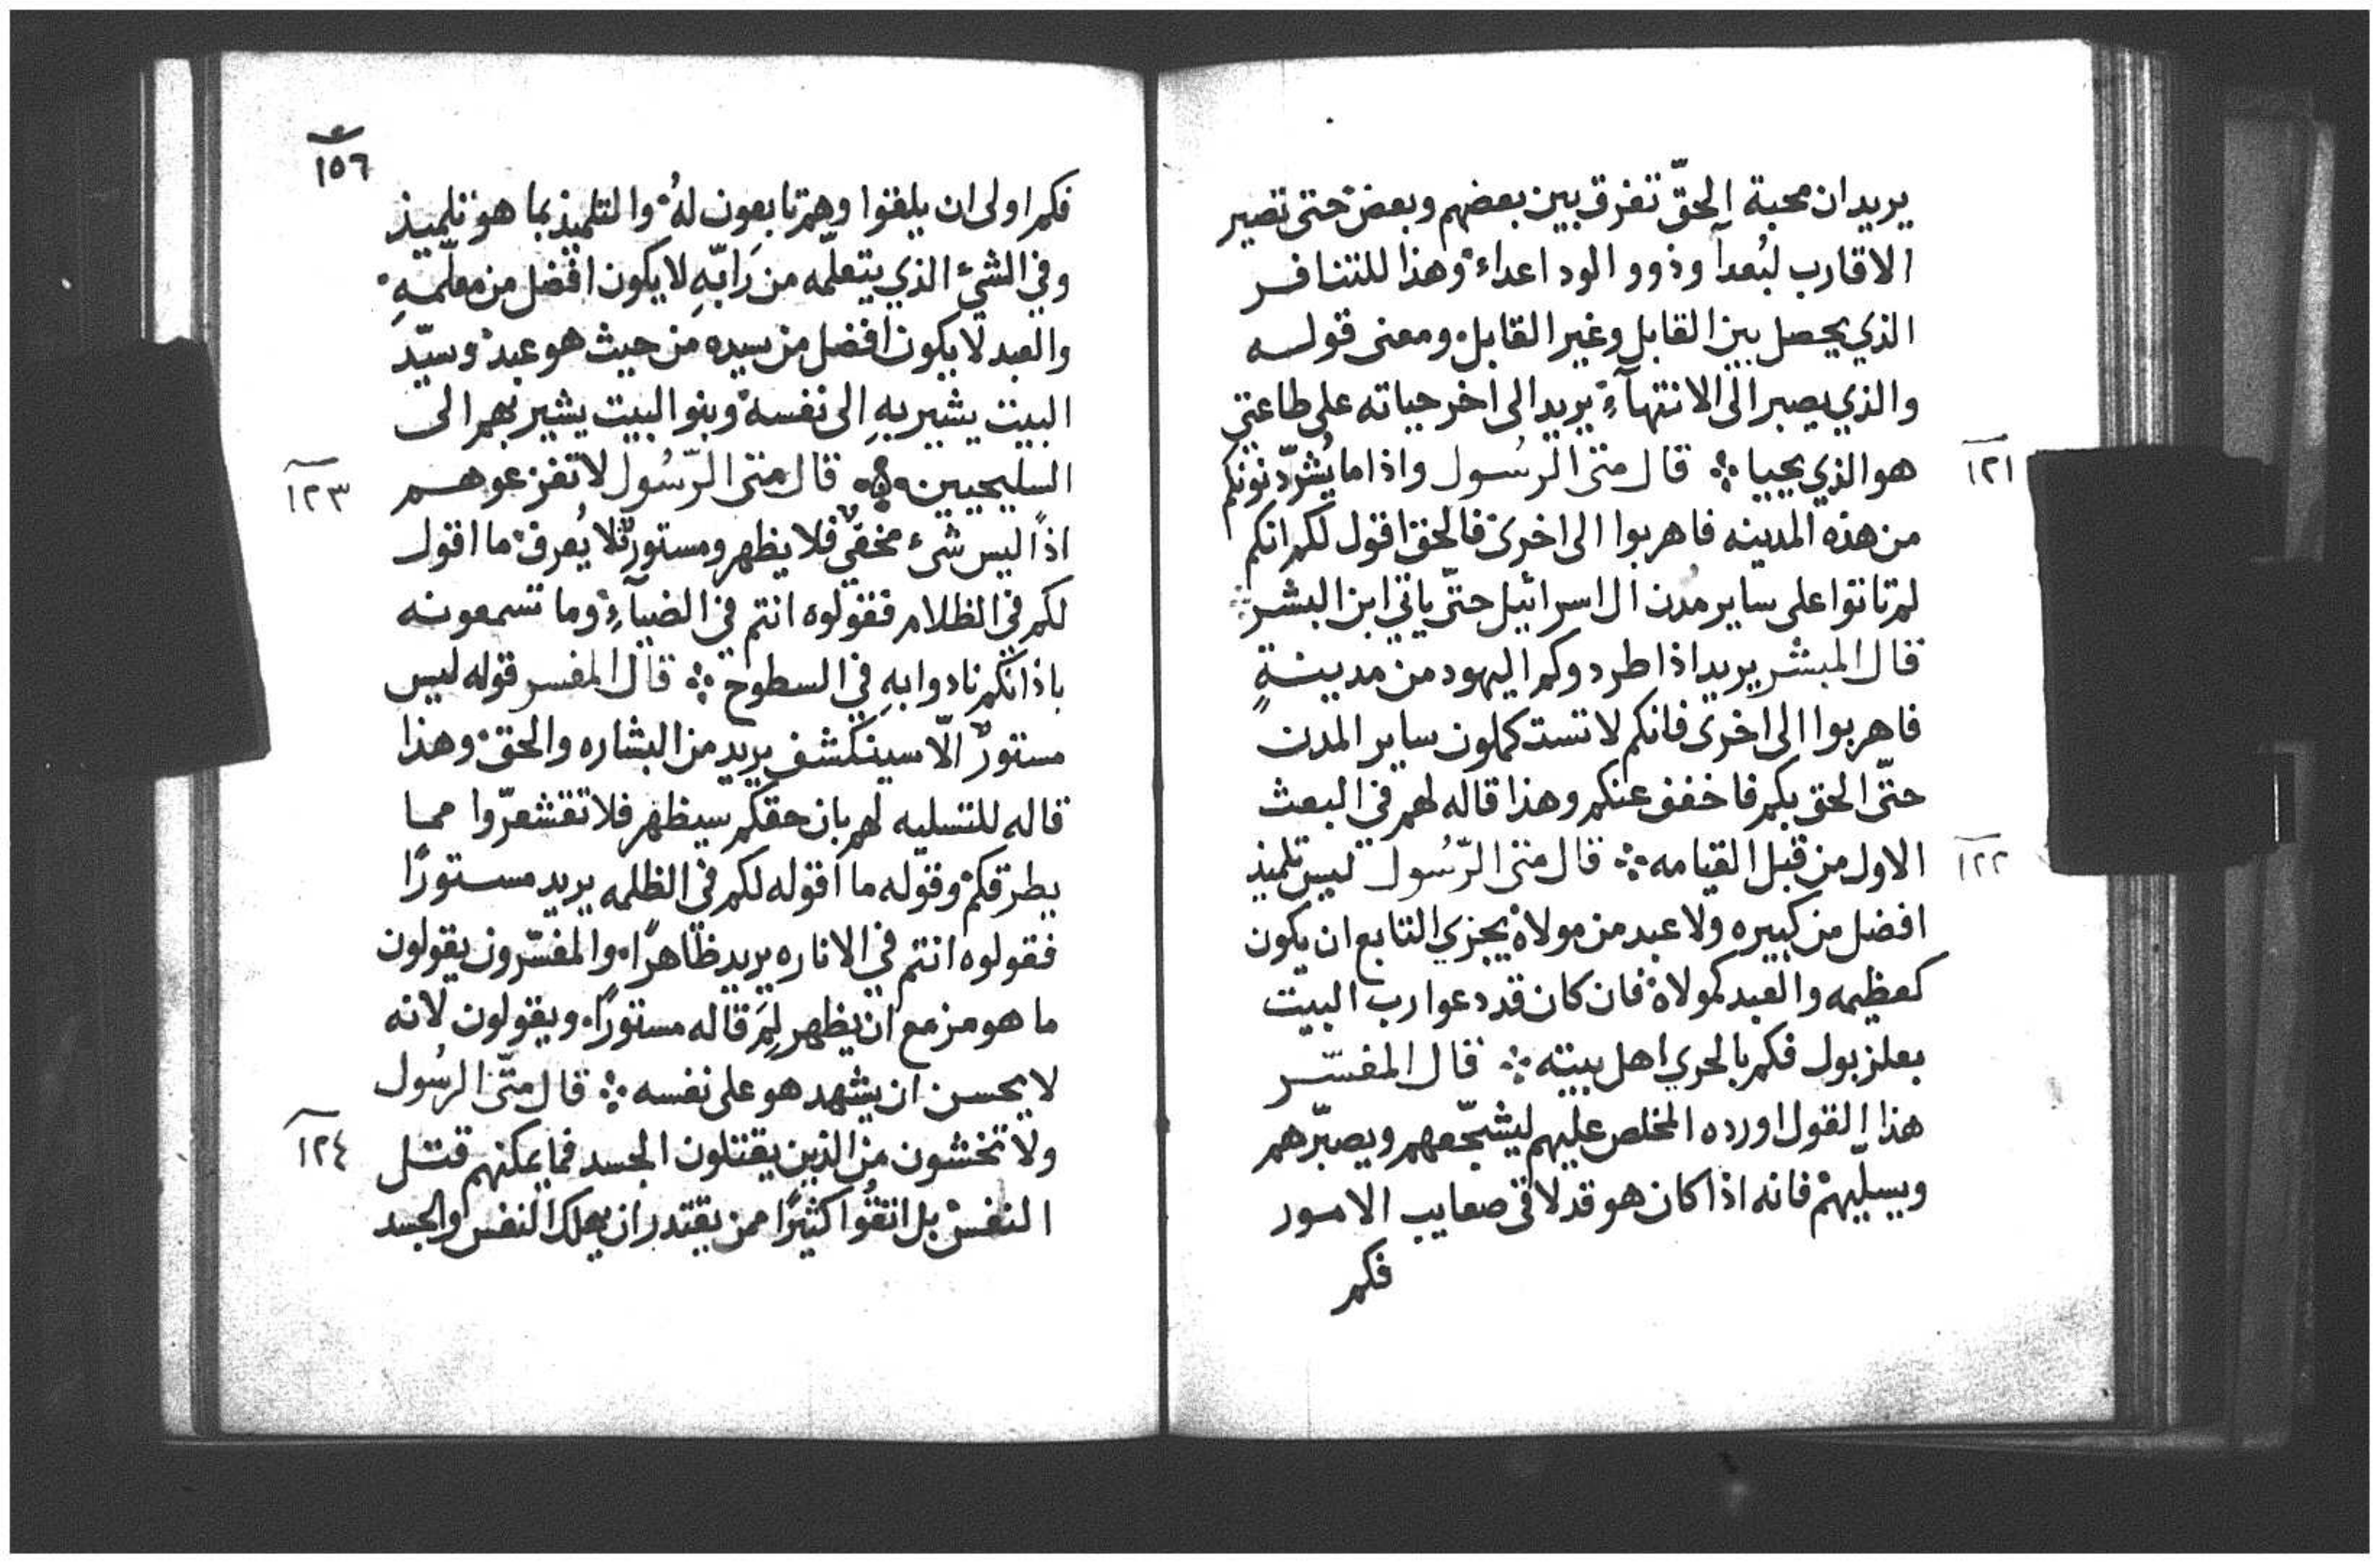 يريد ان محبة الحقّ تفرق بين بعضهم وبعض حتى تصير
الاقارب لبُعدآ وذوو الود اعداء وهذا للتنافر
الذي يحصل بين القابل وغير القابل ومعنى قوله
والذي يصبر الى الانتهآءِ يريد الى اخر حياته على طاعتي
١٢١ هو الذي يحييا ܀ قال متى الرسُول واذا ما يُشرّدونكم
من هذه المدينه فاهربوا الى اخرى فالحق اقول لكم انكم
لم تاتوا على ساير مُدن ال اسرائيل حتّى ياتي ابن البشر ܀
قال المبشر يريد اذا طردوكم اليهود من مدينةٍ
فاهربوا الى اخرى فانكم لا تستكملون ساير المدن
حتّى الحق بكم فاخفف عنكم وهذا قاله لهم في البعث
١٢٢ الاول من قبل القيامه ܀ قال متى الرّسُول ليس تلميذ
افضل من كبيره ولا عبد من مولاه يجزي التابع ان يكون
كعظيمه والعبد كمولاه فان كان قد دعوا رب البيت
بعلزبول فكم بالحري اهل بيته ܀ قال المفسّر
هذا القول اورده المخلص عليهم ليشجّعهم ويصبّرهم
ويسلّيهم فانه اذا كان هو قد لاقى صعايب الامور
فكم
١٥٦
فكم اولى ان يلقوا وهم تابعون لهُ والتلميذ بما هو تلميذ
وفي الشيء الذي يتعلّمه من رَابّهِ لا يكون افضل من معلّمهِ
والعبد لا يكون افضل من سيده من حيث هو عبد وسيّد
البيت يشير بهِ الى نفسه وبنو البيت يشير بهم الى
١٢٣ السليحيين ܀ قال متى الرّسُول لا تفزعوهم
اذًا ليس شىء مخفيٌ فلا يظهر ومستورٌ فلا يُعرف ما اقول
لكم في الظلام فقولوه انتم في الضيآءِ وما تسمعونه
باذانكم نادوا بهِ في السطوح ܀ قال المفسر قوله ليس
مستورٌ الّا سينكشف يريد من البشاره والحق وهذا
قاله للتسليه لهم بان حقكم سيظهر فلا تقشعرّوا مما
يطرقكم وقوله ما اقوله لكم في الظلمه يريد مستورًا
فقولوه انتم في الاناره يريد ظاهرًا والمفسّرون يقولون
ما هو مزمع ان يظهر لِمَ قاله مستورًا ويقولون لانه
لا يحسن ان يشهد هو على نفسه ܀ قال متّى الرسُول
١٢٤ ولا تخشون من الذين يقتلون الجسد فما يمكنهم قتل
النفس بل اتقُوا كثيرًا ممن يقتدر ان يهلك النفس والجسد